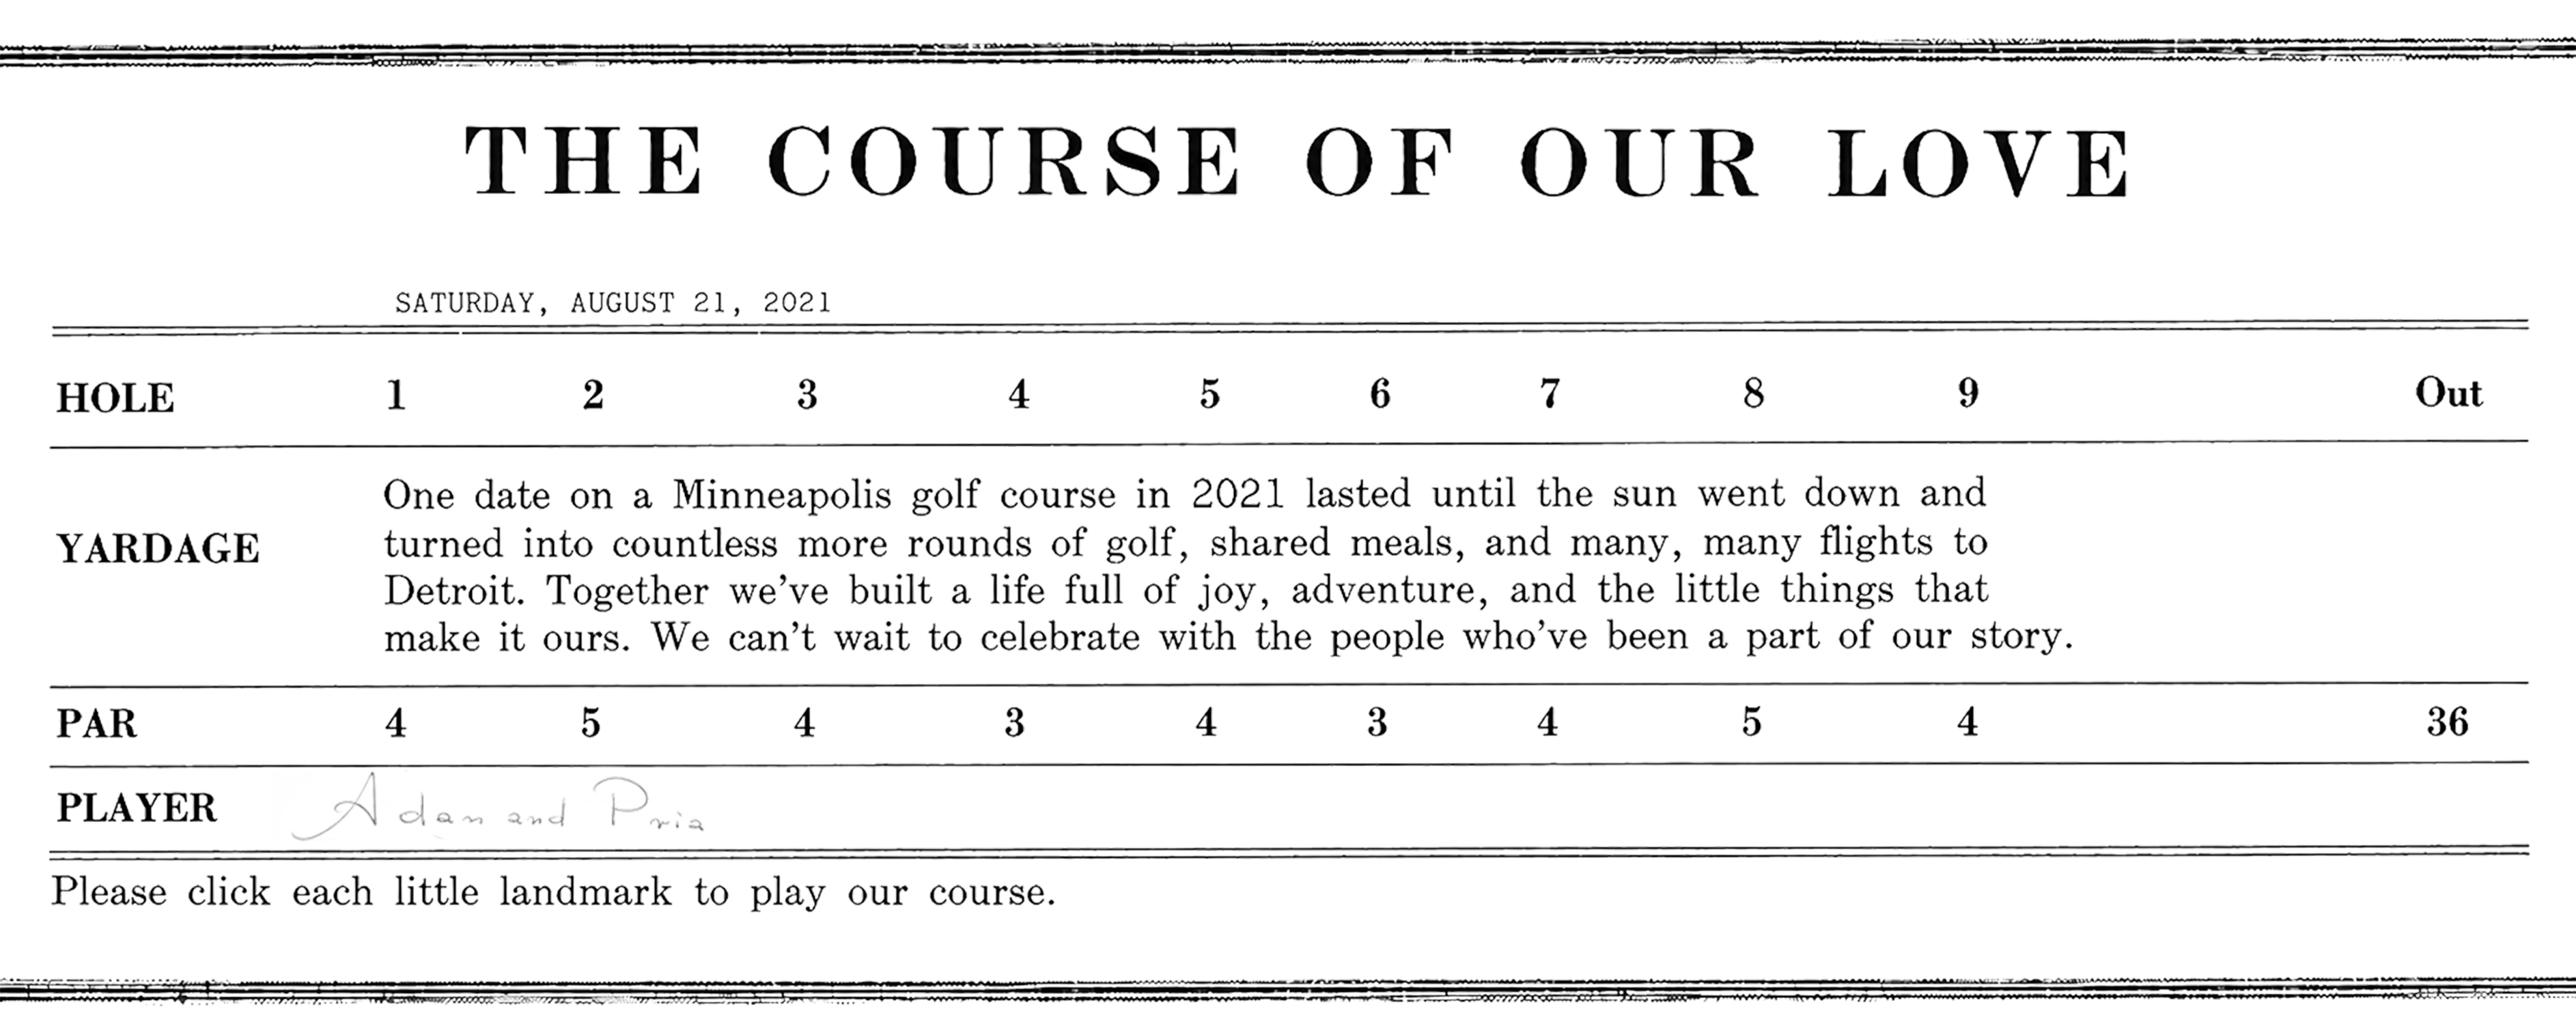 THE COURSE OF OUR LOVE
SATURDAY, AUGUST 21, 2021
HOLE 1 2 3 4 5 6 7 8 9 Out
YARDAGE
One date on a Minneapolis golf course in 2021 lasted until the sun went down and
turned into countless more rounds of golf, shared meals, and many, many flights to
Detroit. Together we've built a life full of joy, adventure, and the little things that
make it ours. We can't wait to celebrate with the people who've been a part of our story.
PAR 4 5 4 3 4 3 4 5 4 36
PLAYER Adan and Pria
Please click each little landmark to play our course.